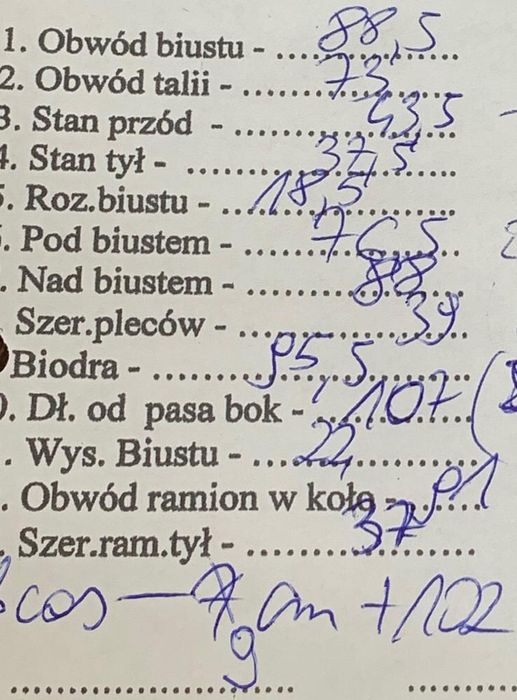 1. Obwód biustu - 88,5
2. Obwód talii - 73
3. Stan przód - 43,5
4. Stan tył - 37,5
5. Roz.biustu - 18,5
5. Pod biustem - 76,5
. Nad biustem - 88
Szer.pleców - 39
Biodra - 95,5
0. Dł. od pasa bok - 107
. Wys. Biustu - 22
. Obwód ramion w koło - 91
. Szer.ram.tył - 37
cm + 102
9